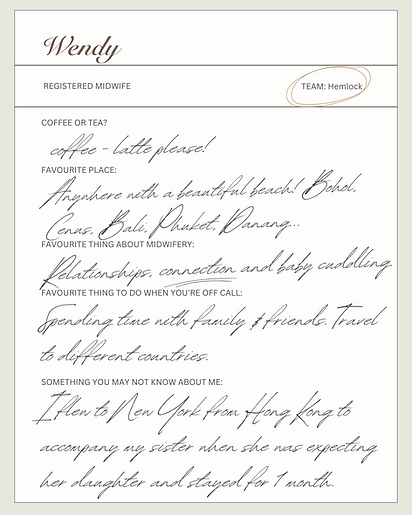 Wendy
REGISTERED MIDWIFE
TEAM: Hemlock
COFFEE OR TEA?
coffee - latte please!
FAVOURITE PLACE:
Anywhere with a beautiful beach! Bohol,
Cebu, Bali, Phuket, Danang...
FAVOURITE THING ABOUT MIDWIFERY:
Relationships, connection and baby cuddling.
FAVOURITE THING TO DO WHEN YOU'RE OFF CALL:
Spending time with family & friends. Travel
to different countries.
SOMETHING YOU MAY NOT KNOW ABOUT ME:
I flew to New York from Hong Kong to
accompany my sister when she was expecting
her daughter and stayed for 1 month.